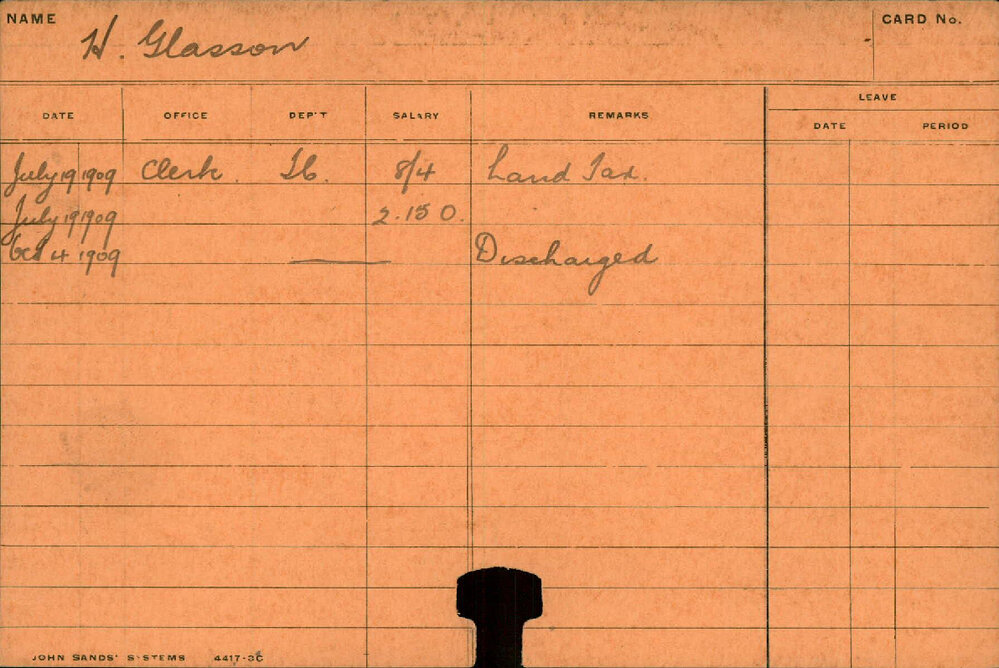 NAME H. Glasson CARD No.
LEAVE
DATE OFFICE DEP'T SALARY REMARKS DATE PERIOD
July 19 1909 Clerk. 8/4 Land Tax.
July 19 1909 2.15 0.
Oct 4 1909 Discharged
JOHN SANDS' SYSTEMS 4417-3C